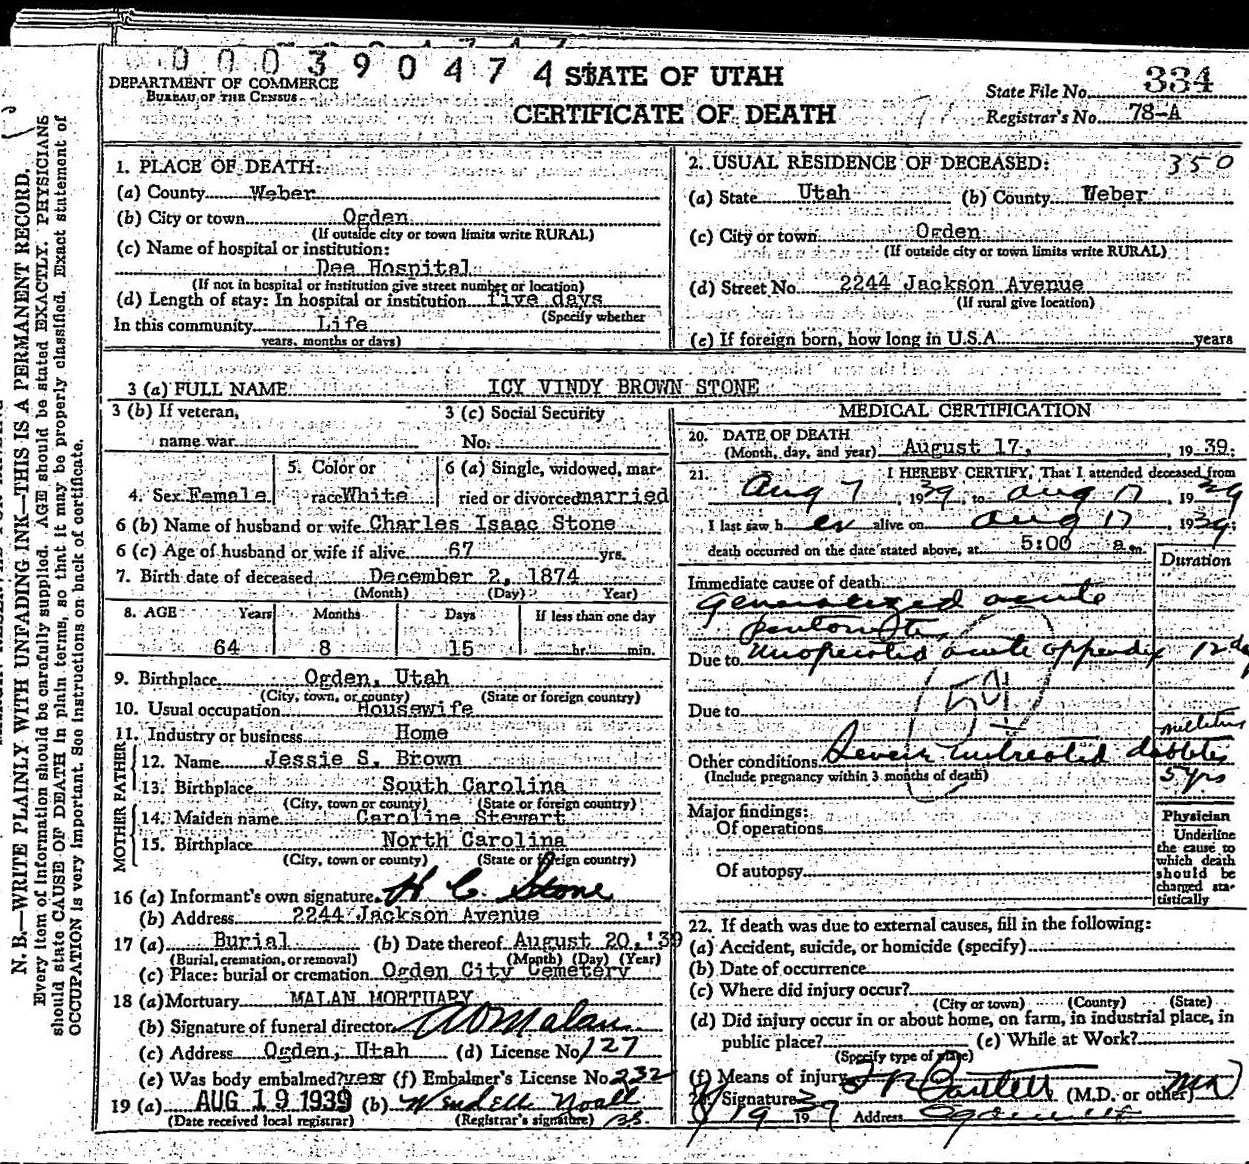 000390474
STATE OF UTAH
CERTIFICATE OF DEATH
DEPARTMENT OF COMMERCE
BUREAU OF THE CENSUS
State File No. 334
Registrar's No. 78-A
N. B.—WRITE PLAINLY WITH UNFADING INK—THIS IS A PERMANENT RECORD.
Every item of information should be carefully supplied. AGE should be stated EXACTLY. PHYSICIANS
should state CAUSE OF DEATH in plain terms, so that it may be properly classified. Exact statement of
OCCUPATION is very important. See instructions on back of certificate.
1. PLACE OF DEATH:
(a) County Weber
(b) City or town Ogden
(If outside city or town limits write RURAL)
(c) Name of hospital or institution:
Dee Hospital
(If not in hospital or institution give street number or location)
(d) Length of stay: In hospital or institution five days
(Specify whether
In this community Life
years, months or days)
2. USUAL RESIDENCE OF DECEASED: 350
(a) State Utah (b) County Weber
(c) City or town Ogden
(If outside city or town limits write RURAL)
(d) Street No. 2244 Jackson Avenue
(If rural give location)
(e) If foreign born, how long in U.S.A. years
3 (a) FULL NAME ICY VINDY BROWN STONE
3 (b) If veteran, 3 (c) Social Security
name war No.
4. Sex Female 5. Color or race White 6 (a) Single, widowed, married or divorced married
6 (b) Name of husband or wife Charles Isaac Stone
6 (c) Age of husband or wife if alive 67 yrs.
7. Birth date of deceased December 2, 1874
(Month) (Day) Year)
8. AGE Years Months Days If less than one day
64 8 15 hr. min.
9. Birthplace Ogden, Utah
(City, town, or county) (State or foreign country)
10. Usual occupation Housewife
11. Industry or business Home
FATHER
12. Name Jessie S. Brown
13. Birthplace South Carolina
(City, town or county) (State or foreign country)
MOTHER
14. Maiden name Caroline Stewart
15. Birthplace North Carolina
(City, town or county) (State or foreign country)
16 (a) Informant's own signature H C. Stone
(b) Address 2244 Jackson Avenue
17 (a) Burial (b) Date thereof August 20, '39
(Burial, cremation, or removal) (Month) (Day) (Year)
(c) Place: burial or cremation Ogden City Cemetery
18 (a) Mortuary MALAN MORTUARY
(b) Signature of funeral director Malan
(c) Address Ogden, Utah (d) License No. 127
(e) Was body embalmed? yes (f) Embalmer's License No. 232
19 (a) AUG 19 1939 (b) Wendell Noall
(Date received local registrar) (Registrar's signature)
MEDICAL CERTIFICATION
20. DATE OF DEATH
(Month, day, and year) August 17, 1939;
21. I HEREBY CERTIFY, That I attended deceased from
Aug 7, 1939, to Aug 17, 1939
I last saw h er alive on Aug 17, 1939;
death occurred on the date stated above, at 5:00 a.m.
Duration
Immediate cause of death
Generalized acute
peritonitis
Due to unoperated acute appendix 12 day
Due to
Other conditions Severe untreated diabetes mellitus 5 yrs
(Include pregnancy within 3 months of death)
Major findings:
Of operations
Of autopsy
Physician
Underline
the cause to
which death
should be
charged sta-
tistically
22. If death was due to external causes, fill in the following:
(a) Accident, suicide, or homicide (specify)
(b) Date of occurrence
(c) Where did injury occur?
(City or town) (County) (State)
(d) Did injury occur in or about home, on farm, in industrial place, in
public place? (e) While at Work?
(Specify type of place)
(f) Means of injury
Signature Bartlett (M.D. or other) MD
8/19 1939 Address Ogden Ut